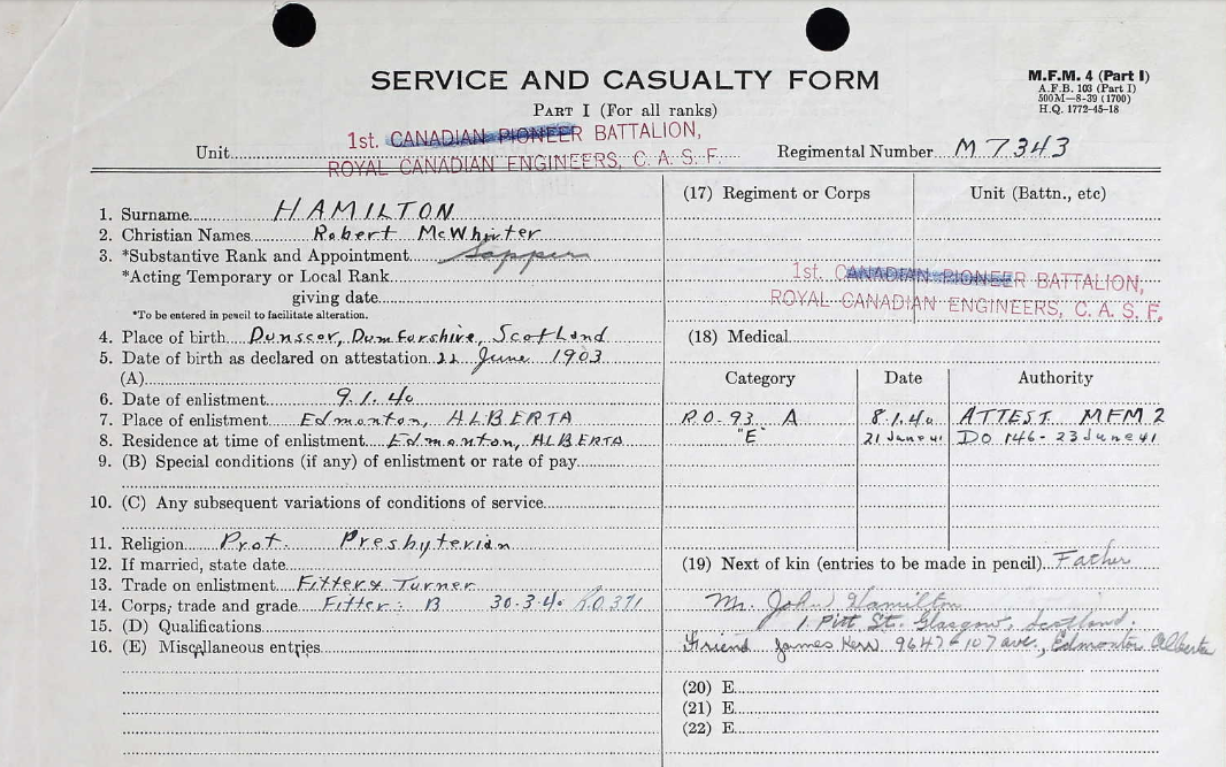 SERVICE AND CASUALTY FORM
M.F.M. 4 (Part I)
A.F.B. 103 (Part I)
500M—8-39 (1700)
H.Q. 1772-45-18
PART I (For all ranks)
Unit 1st. CANADIAN PIONEER BATTALION,
ROYAL CANADIAN ENGINEERS, C. A. S. F.
Regimental Number M 7343
1. Surname HAMILTON
2. Christian Names Robert McWhirter
3. *Substantive Rank and Appointment Sapper
*Acting Temporary or Local Rank
giving date
*To be entered in pencil to facilitate alteration.
4. Place of birth Dunscor, Dumfarshire, Scotland
5. Date of birth as declared on attestation 22 June 1903
(A)
6. Date of enlistment 9.1.40
7. Place of enlistment Edmonton, ALBERTA
8. Residence at time of enlistment Edmonton, ALBERTA
9. (B) Special conditions (if any) of enlistment or rate of pay
10. (C) Any subsequent variations of conditions of service
11. Religion Prot. Presbyterian
12. If married, state date
13. Trade on enlistment Fitter & Turner
14. Corps, trade and grade Fitter: B 30-3-40 R.O 371
15. (D) Qualifications
16. (E) Miscellaneous entries
(17) Regiment or Corps Unit (Battn., etc)
1st. CANADIAN PIONEER BATTALION,
ROYAL CANADIAN ENGINEERS, C. A. S. F.
(18) Medical
Category Date Authority
R.O.-93 A 8.1.40 ATTEST. MFM 2
"E" 21 June 41 DO 146 - 23 June 41
(19) Next of kin (entries to be made in pencil) Father
Mr. John Hamilton
1 Pitt St. Glasgow, Scotland.
Friend James Kerr 9647-107 ave., Edmonton Alberta
(20) E
(21) E
(22) E